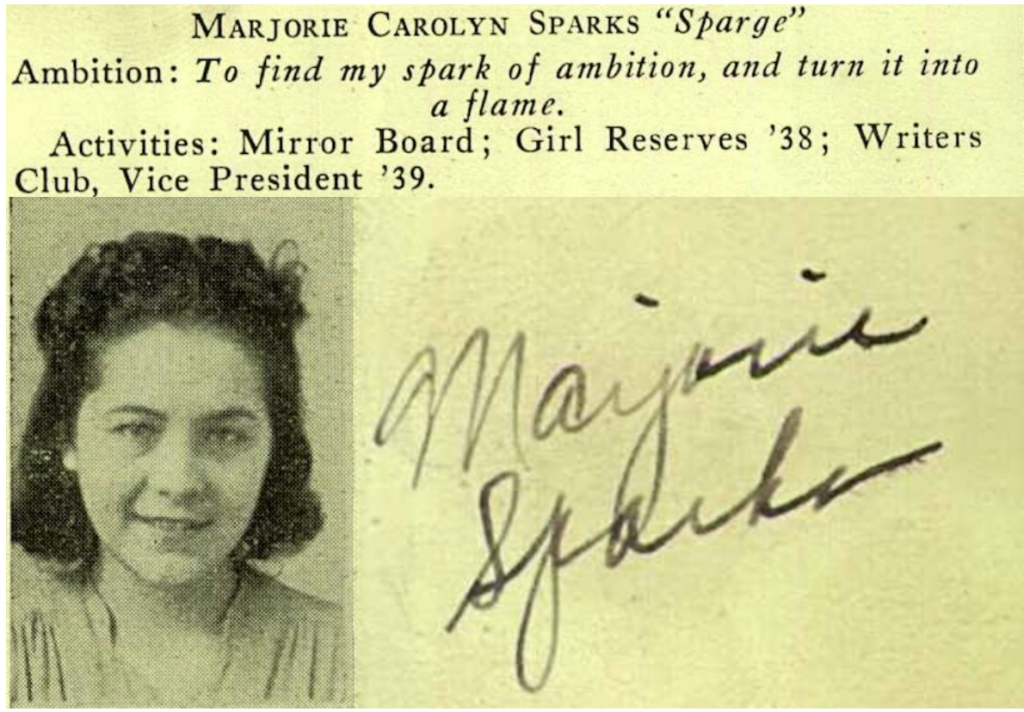 MARJORIE CAROLYN SPARKS "Sparge"
Ambition: To find my spark of ambition, and turn it into
a flame.
Activities: Mirror Board; Girl Reserves '38; Writers
Club, Vice President '39.
Marjorie
Sparks